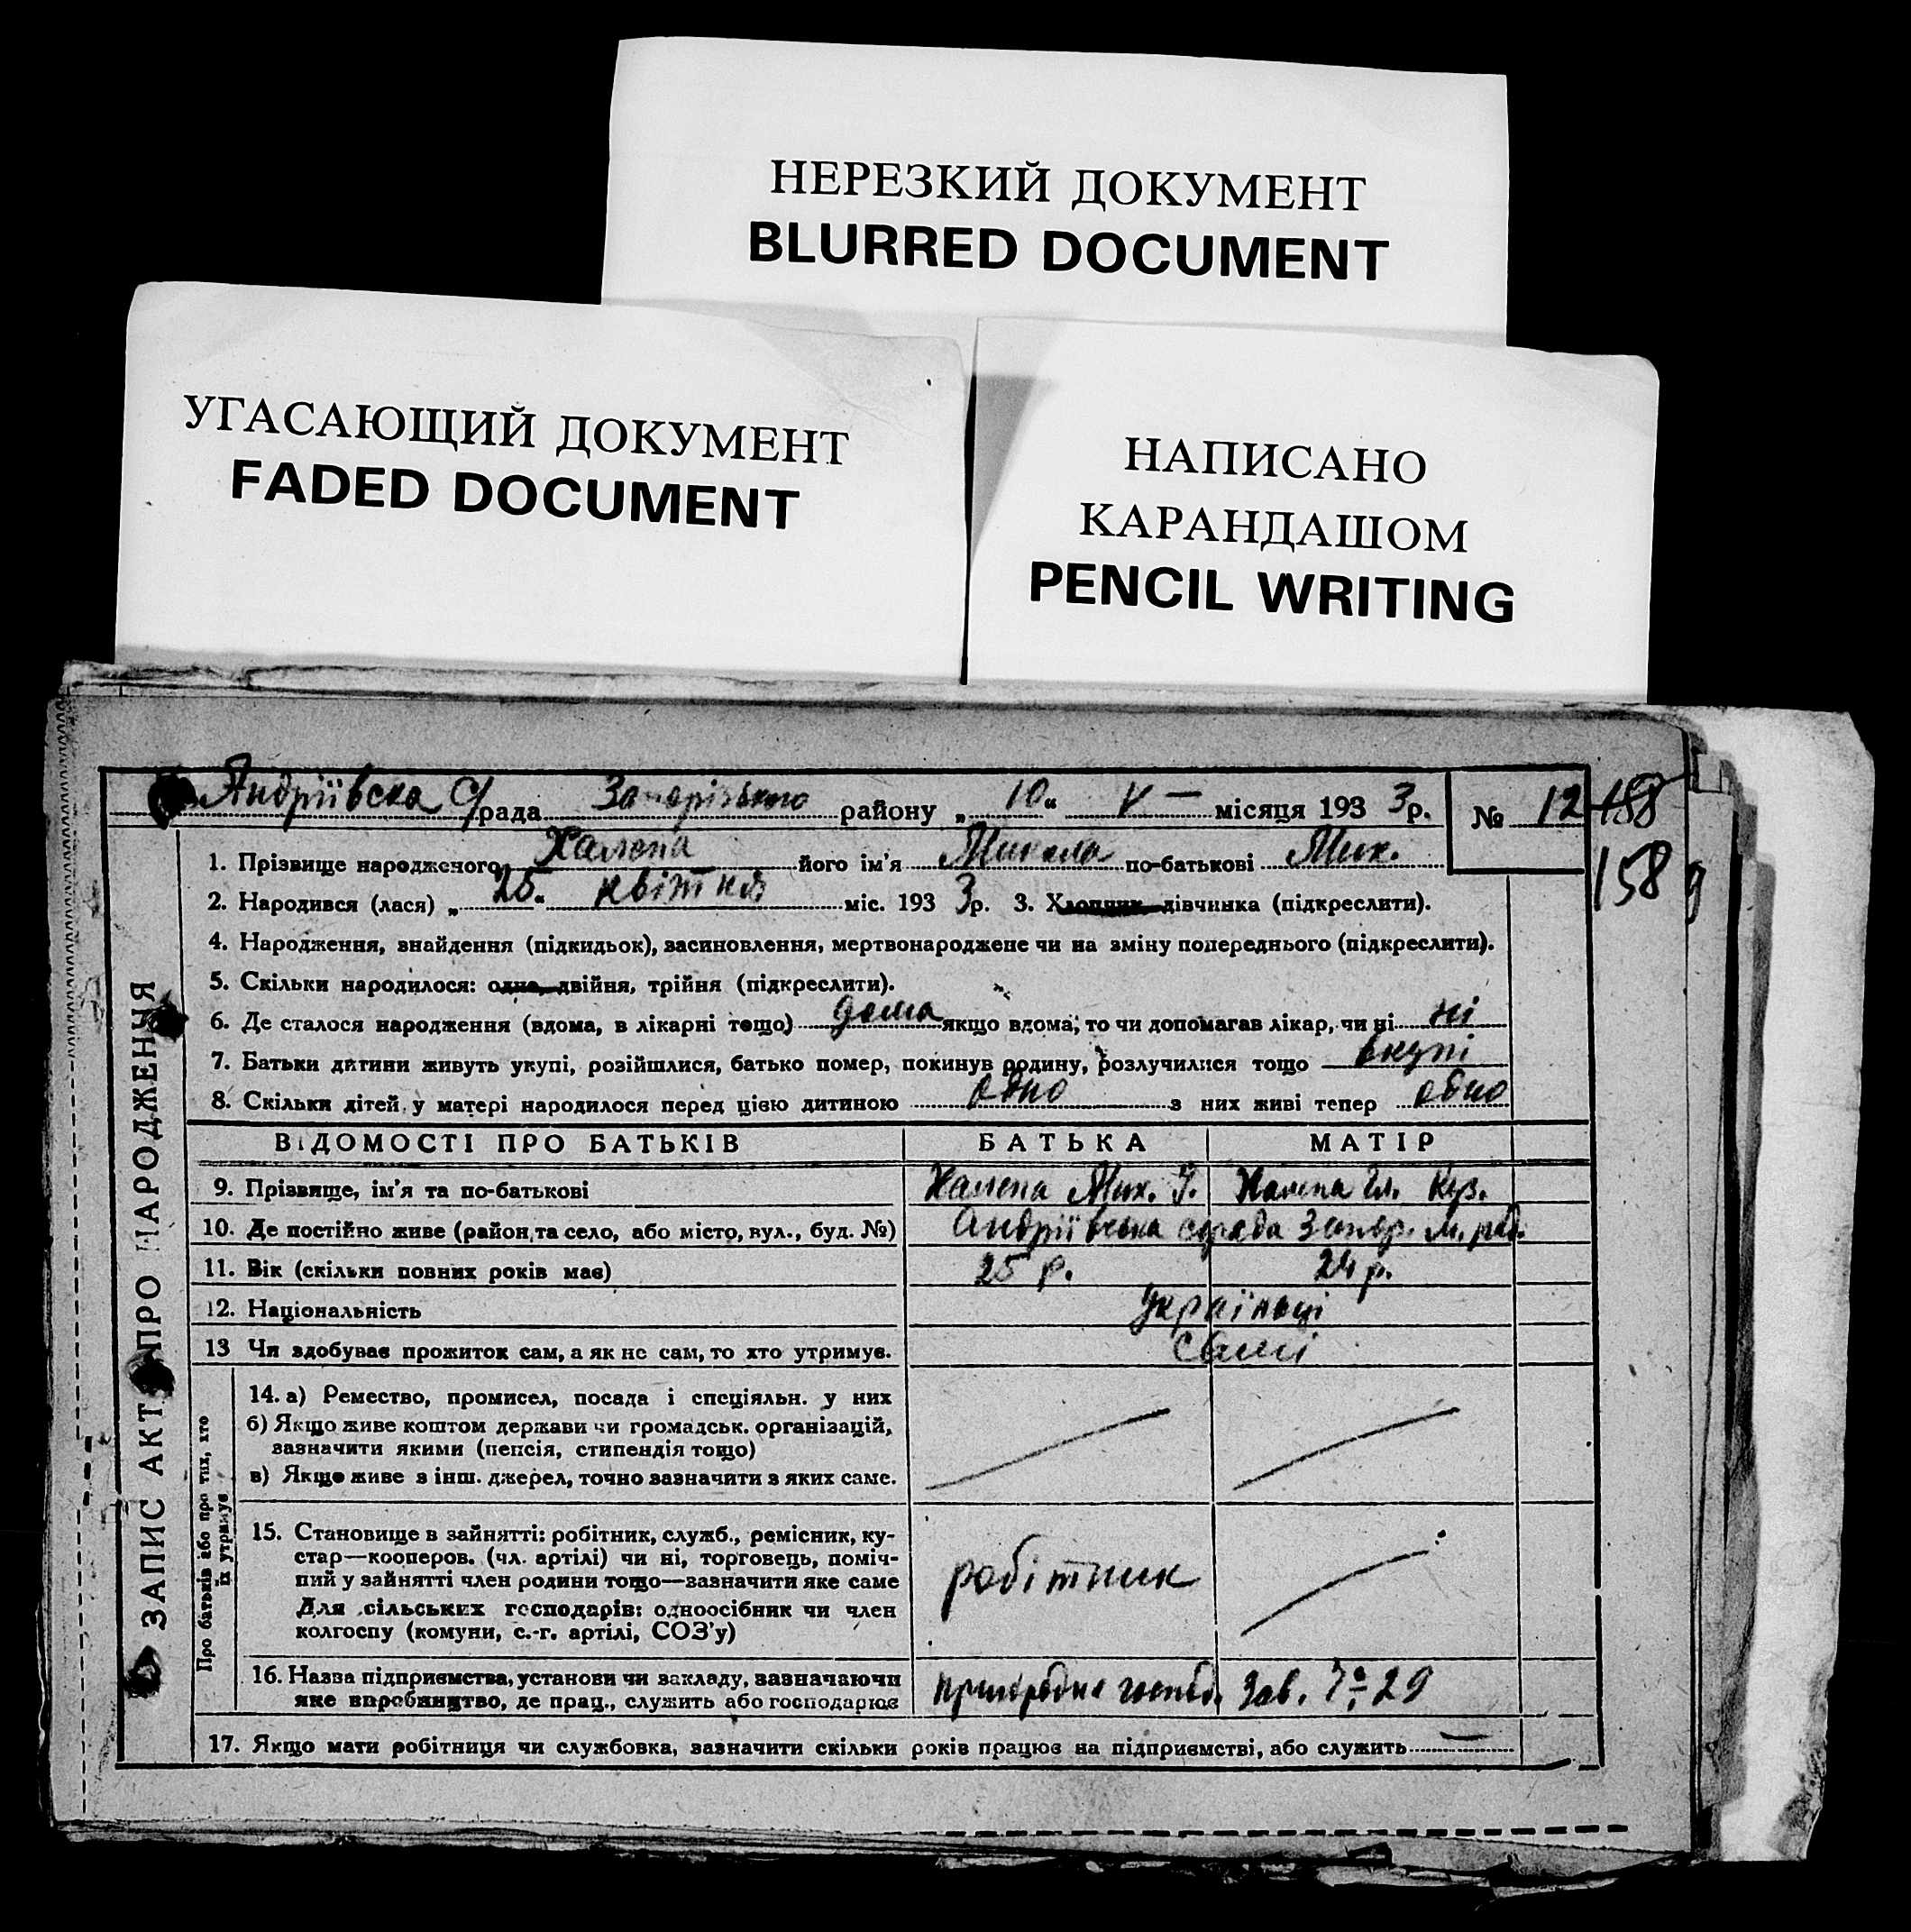 НЕРЕЗКИЙ ДОКУМЕНТ
BLURRED DOCUMENT
УГАСАЮЩИЙ ДОКУМЕНТ
FADED DOCUMENT
НАПИСАНО
КАРАНДАШОМ
PENCIL WRITING
Андріївска С/рада Запорізького району „ 10 “ V — місяця 193 3 р. № 12 158
158
1. Прізвище народженого Халепа його ім'я Микола по-батькові Мих.
2. Народився (лася) „ 25 “ квітня міс. 193 3 р. 3. Хлопчик дівчинка (підкреслити).
4. Народження, знайдення (підкидьок), засиновлення, мертвонароджене чи на зміну попереднього (підкреслити).
5. Скільки народилося: одне, двійня, трійня (підкреслити).
6. Де сталося народження (вдома, в лікарні тощо) дома якщо вдома, то чи допомагав лікар, чи ні ні
7. Батьки дитини живуть укупі, розійшлися, батько помер, покинув родину, розлучилися тощо вкупі
8. Скільки дітей у матері народилося перед цією дитиною одно з них живі тепер одно
ЗАПИС АКТ ПРО НАРОДЖЕННЯ
ВІДОМОСТІ ПРО БАТЬКІВ БАТЬКА МАТІР
9. Прізвище, ім'я та по-батькові Халепа Мих. Халепа Куз.
10. Де постійно живе (район та село, або місто, вул., буд. №) Андріївська с/рада Запор. м. рад.
11. Вік (скільки повних років має) 25 р. 24 р.
12. Національність Українці
13 Чи здобував прожиток сам, а як не сам, то хто утримує. самі
Про батьків або про тих, хто
їх утримує
14. а) Ремество, промисел, посада і спеціяльн. у них
б) Якщо живе коштом держави чи громадськ. організацій,
зазначити якими (пенсія, стипендія тощо)
в) Якщо живе з інш. джерел, точно зазначити з яких саме.
15. Становище в зайнятті: робітник, служб., ремісник, ку-
стар—кооперов. (чл. артілі) чи ні, торговець, поміч-
ний у зайнятті член родини тощо—зазначити яке саме
Для сільських господарів: одноосібник чи член
колгоспу (комуни, с.-г. артілі, СОЗ'у)
робітник
16. Назва підприємства, установи чи закладу, зазначаючи
яке виробництво, де прац., служить або господарює
Зав. 29
17. Якщо мати робітниця чи службовка, зазначити скільки років працює на підприємстві, або служить —